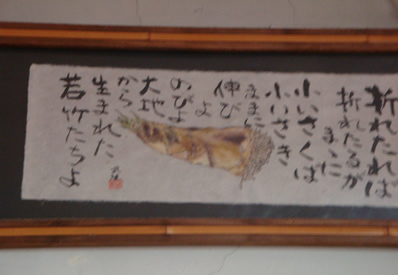 折れたれば
折れたるが
まゝに
小いさくば
小いさき
まゝに
伸び
よ
のびよ
大地
から
生まれた
若竹たちよ